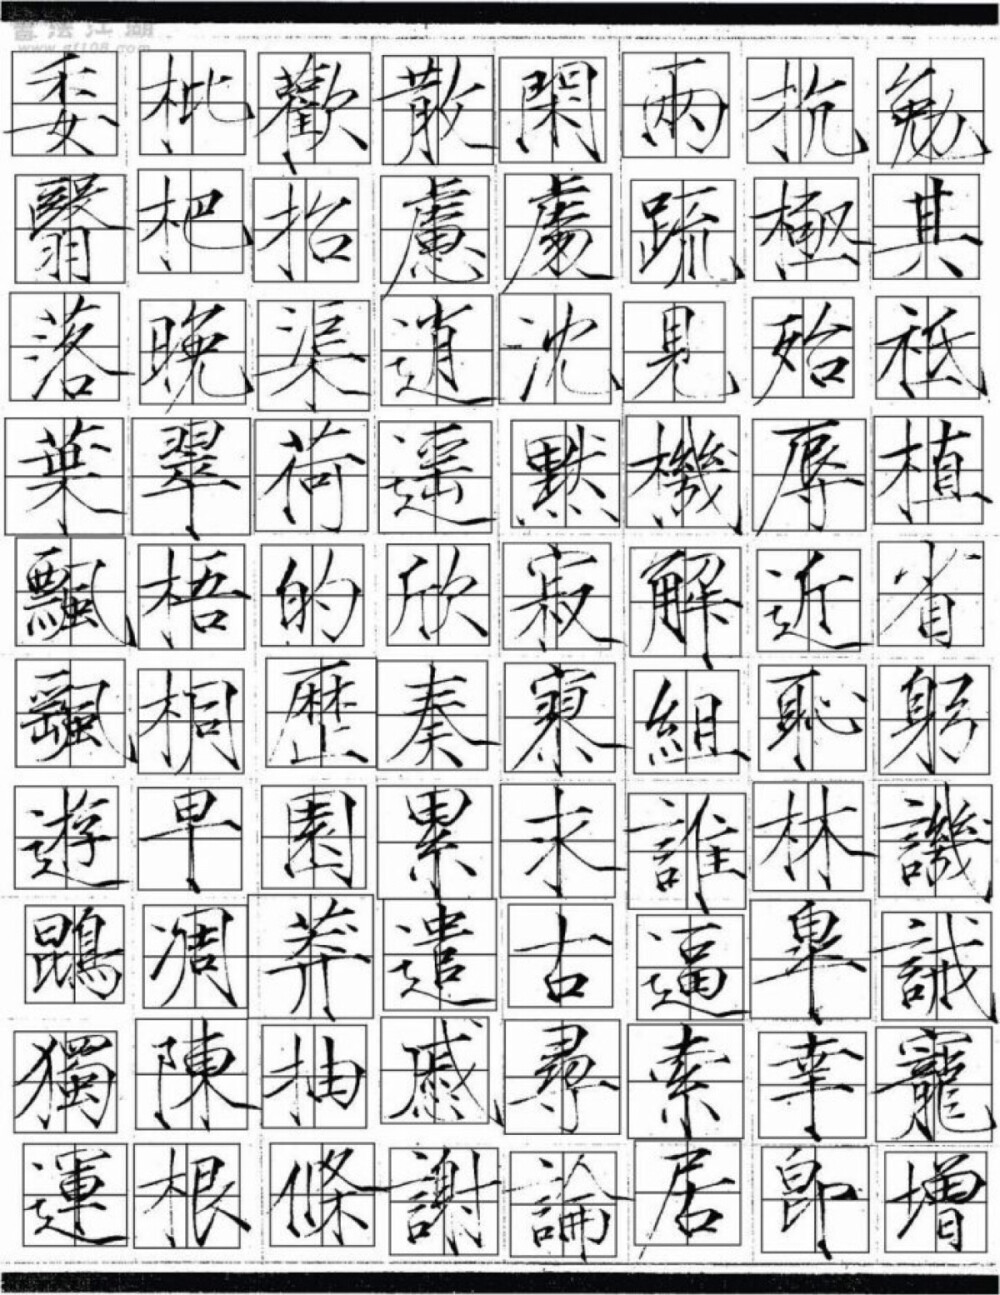 書法江湖
勉其祗植省躬譏誡寵增
抗極殆辱近恥林皋幸即
兩疏見機解組誰逼索居
閑處沈默寂寥求古尋論
散慮逍遥欣奏累遣慼謝
歡招渠荷的歷園莽抽條
枇杷晚翠梧桐早凋陳根
委翳落葉飄颻遊鵾獨運